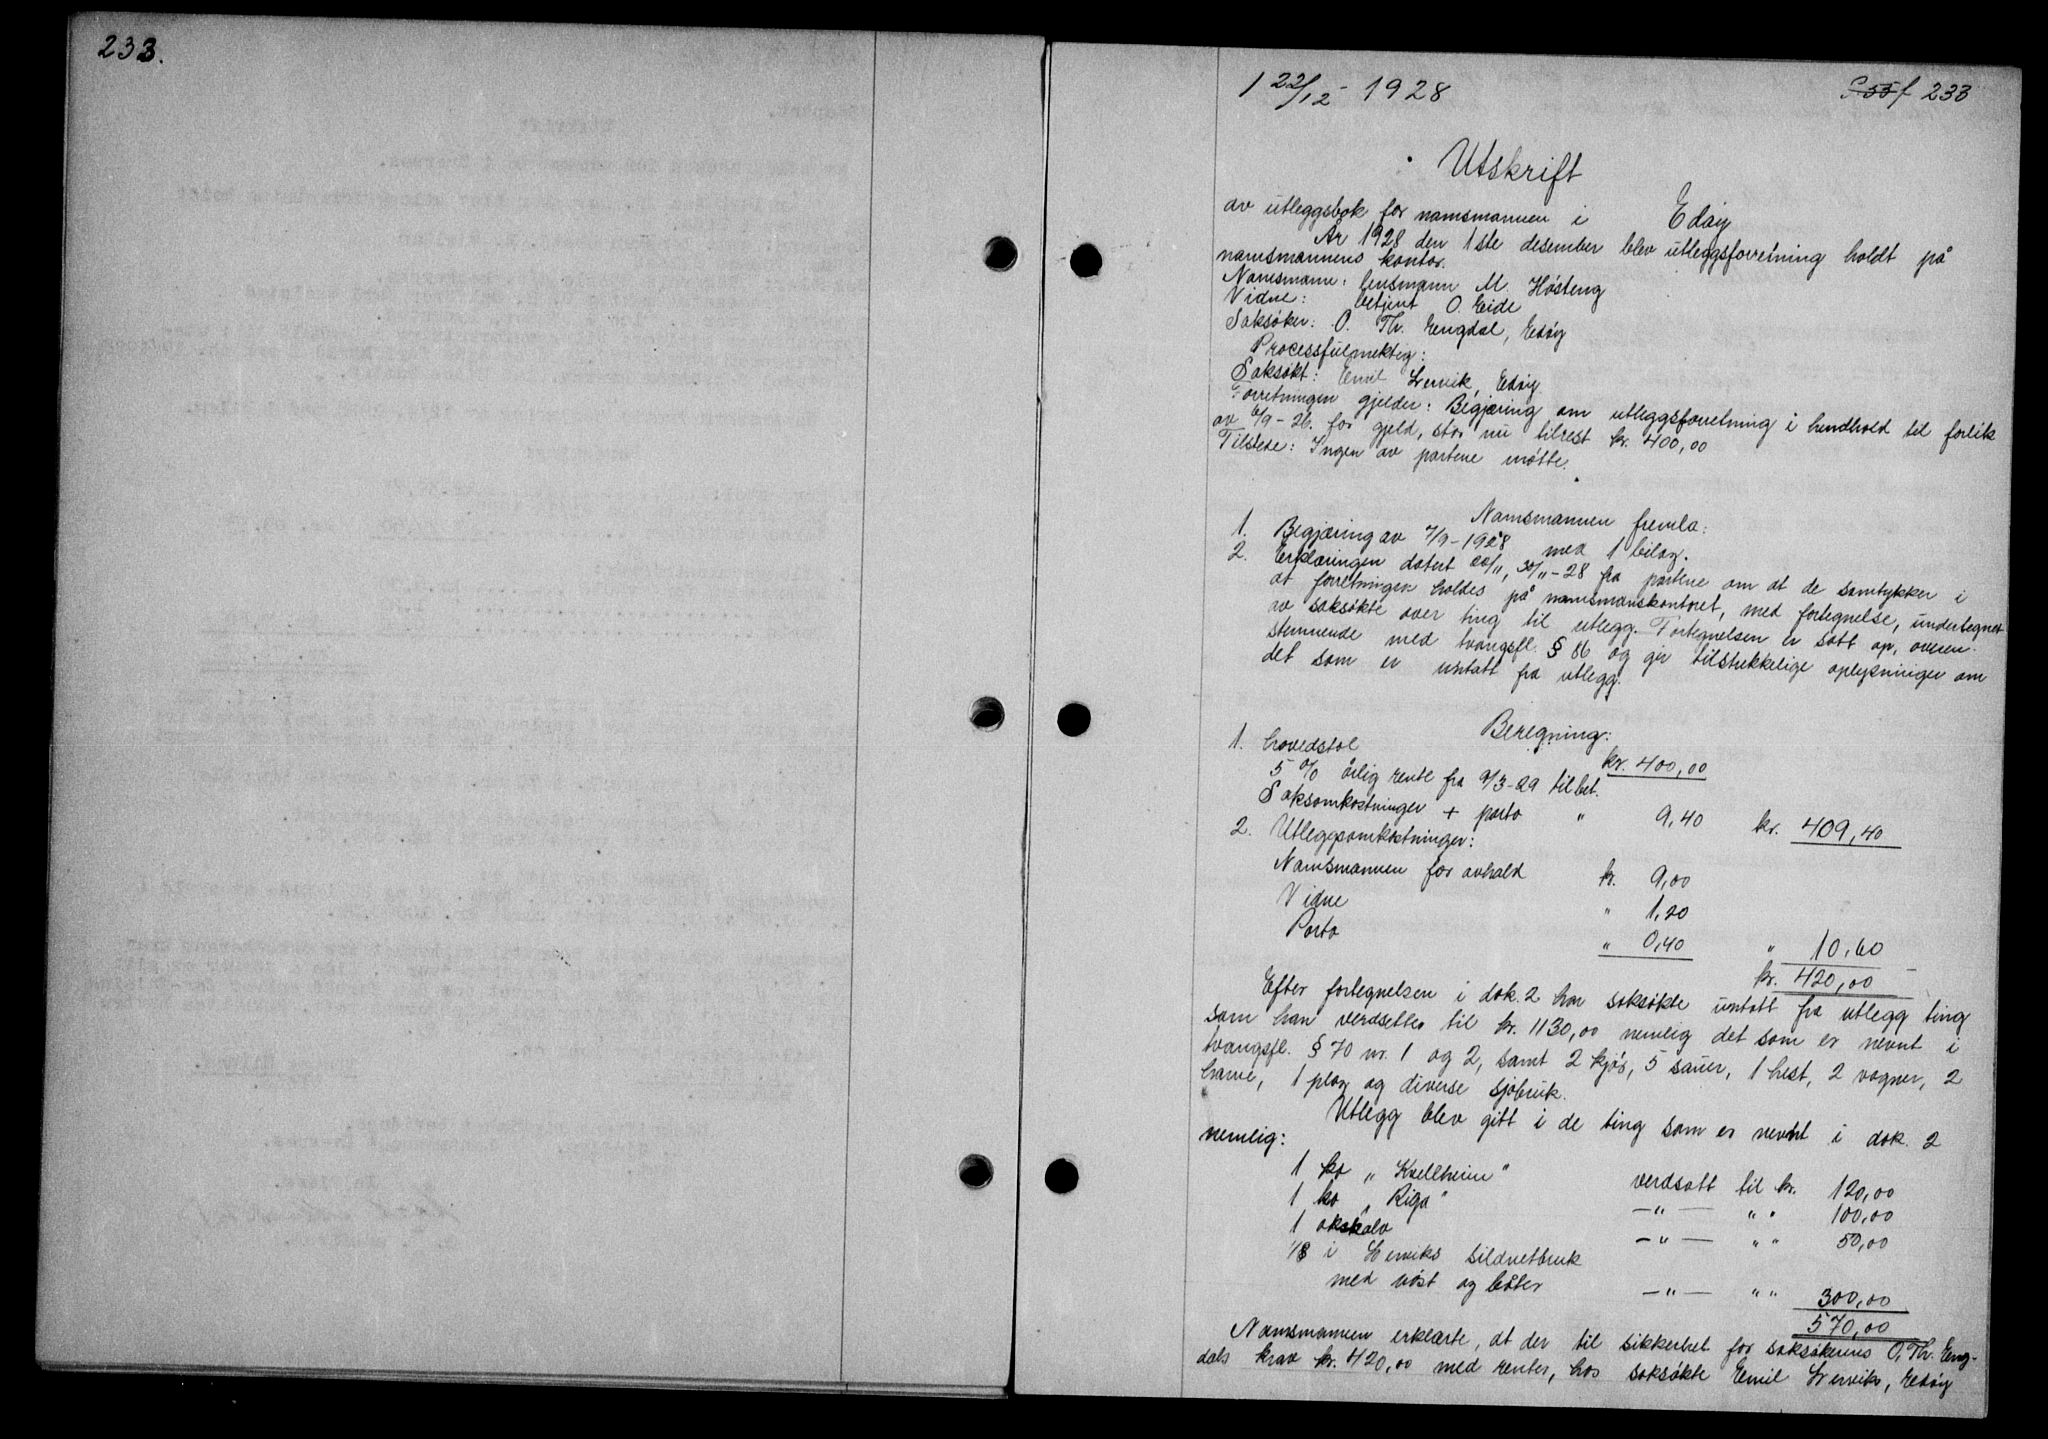 233.
1 22/12 - 1928
f 233
Utskrift
av utleggsbok for namsmannen i Edøy
År 1928 den 1ste desember blev utleggsforretning holdt på
namsmannens kontor.
Namsmann: lensmann M. Høsteng
Vidne: betjent O. Eide
Saksøker: O. Th. Engdal, Edøy
Processfulmektig:
Saksøkt: Emil Lervik, Edøy
Forretningen gjelder: Begjæring om utleggsforretning i henhold til forlik
av 6/9-26. for gjeld, stor nu tilrest kr. 400,00
Tilstede: Ingen av partene møtte.
Namsmannen fremla:
1. Begjæring av 7/9-1928 med 1 bilag.
2. Erklæringen datert 20/11, 30/11-28 fra partene om at de samtykker i
at forretningen holdes på namsmanskontoret, med fortegnelse, undertegnet
av saksøkte over ting til utlegg. Fortegnelsen er satt op, overen-
stemmende med tvangsfl. § 86 og gir tilstrekkelige oplysninger om
det som er untatt fra utlegg.
Beregning:
1. hovedstol kr. 400,00
5 % årlig rente fra 9/3-29 til bet.
Saksomkostninger + porto " 9,40 kr. 409,40
2. Utleggsomkostninger:
Namsmannen for avhold kr. 9,00
Vidne " 1,20
Porto " 0,40 " 10,60
kr. 420,00
Efter fortegnelsen i dok. 2 har saksøkte untatt fra utlegg ting
som han verdsetter til kr. 1130,00 nemlig det som er nevnt i
tvangsfl. § 70 nr. 1 og 2, samt 2 kjør, 5 sauer, 1 hest, 2 vogner, 2
harve, 1 plog og diverse sjøbruk.
Utlegg blev gitt i de ting som er nevnt i dok. 2
nemlig:
1 ko „ Kvellheim " verdsatt til kr. 120,00
1 ko „ Riga " -"- " " 100,00
1 oksekalv -"- " " 50,00
1/8 i Lerviks sildnetbruk
med nøst og båter -"- " " 300,00
570,00
Namsmannen erklærte, at der til sikkerhet for saksøkerens O. Th. Eng-
dals krav kr. 420,00 med renter, hos saksøkte Emil Lerviks, Edøy